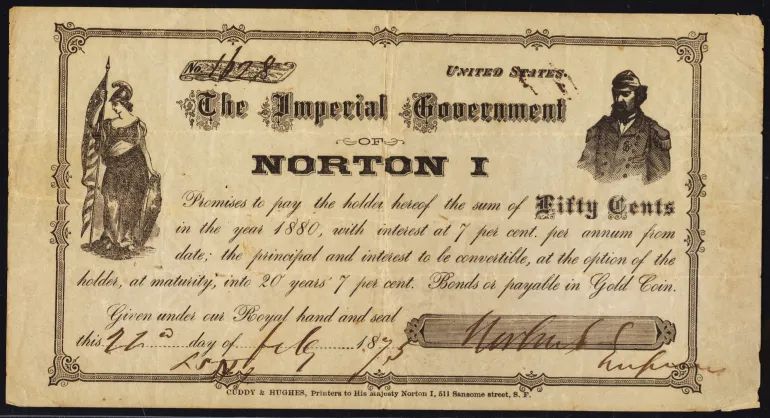 No. 1678
UNITED STATES.
The Imperial Government
OF
NORTON I
Promises to pay the holder hereof the sum of Fifty Cents
in the year 1880, with interest at 7 per cent. per annum from
date; the principal and interest to be convertible, at the option of the
holder, at maturity, into 20 years' 7 per cent. Bonds or payable in Gold Coin.
Given under our Royal hand and seal
this 22nd day of 1875
Norton I
CUDDY & HUGHES, Printers to His Majesty Norton I, 511 Sansome street, S. F.